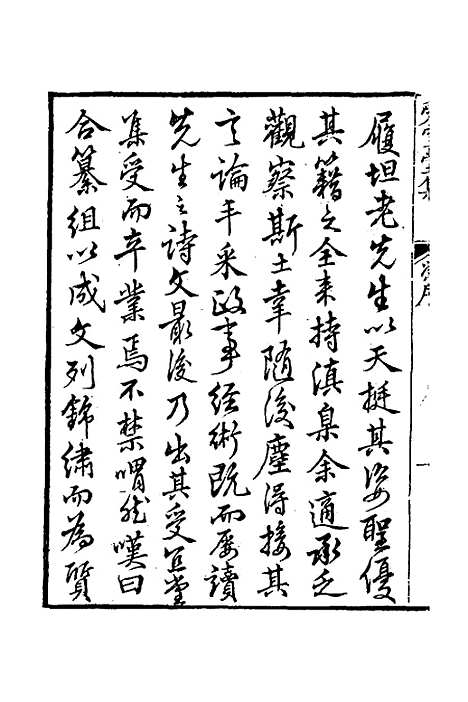 履坦老先生以天挺其姿聖優
其籍之全来持滇臬余適承乏
觀察斯土幸随後塵得接其
言論丰采政事经術既而屡讀
先生之詩文最後乃出其受宜堂
集受而卒業焉不禁喟然嘆曰
合纂组以成文列錦繡而為質